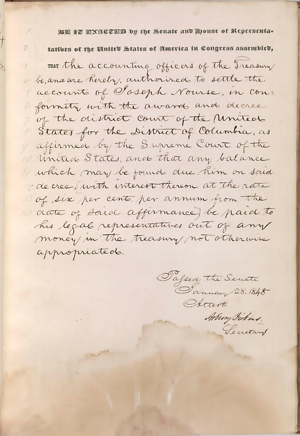 BE IT ENACTED by the Senate and House of Representa-
tatives of the United States of America in Congress assembled,
THAT the accounting officers of the Treasury
be, and are hereby, authorized to settle the
accounts of Joseph Nourse, in con-
formity with the award and decree
of the district court of the United
States for the District of Columbia, as
affirmed by the Supreme Court of the
United States, and that any balance
which may be found due him on said
decree, (with interest thereon at the rate
of six per cent per annum from the
date of said affirmance) be paid to
his legal representatives out of any
money in the treasury, not otherwise
appropriated.
Passed the Senate
January 28. 1848
Attest
Secretary